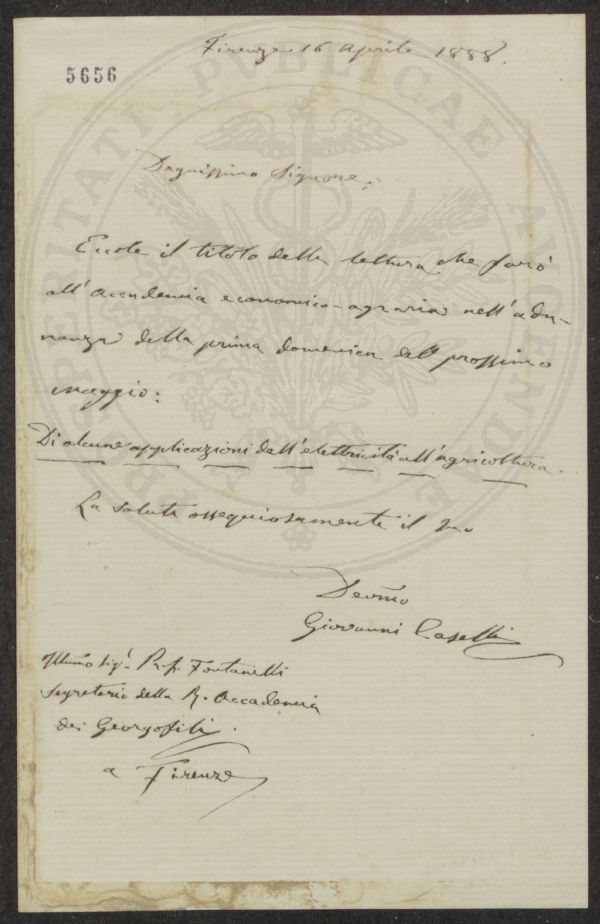 Firenze 16 Aprile 1888.
5656
PROSPERITATI PUBLICAE AUGENDAE
Degnissimo Signore,
Eccole il titolo della lettura che farò
all'Accademia economico-agraria nell'adu-
nanza della prima domenica del prossimo
maggio:
Di alcune applicazioni dell'elettricità all'agricoltura.
La saluta ossequiosamente il suo
Devmo
Giovanni Caselli
Illmo Sigr. Prof. Fontanelli
Segretario della R. Accademia
dei Georgofili.
a Firenze